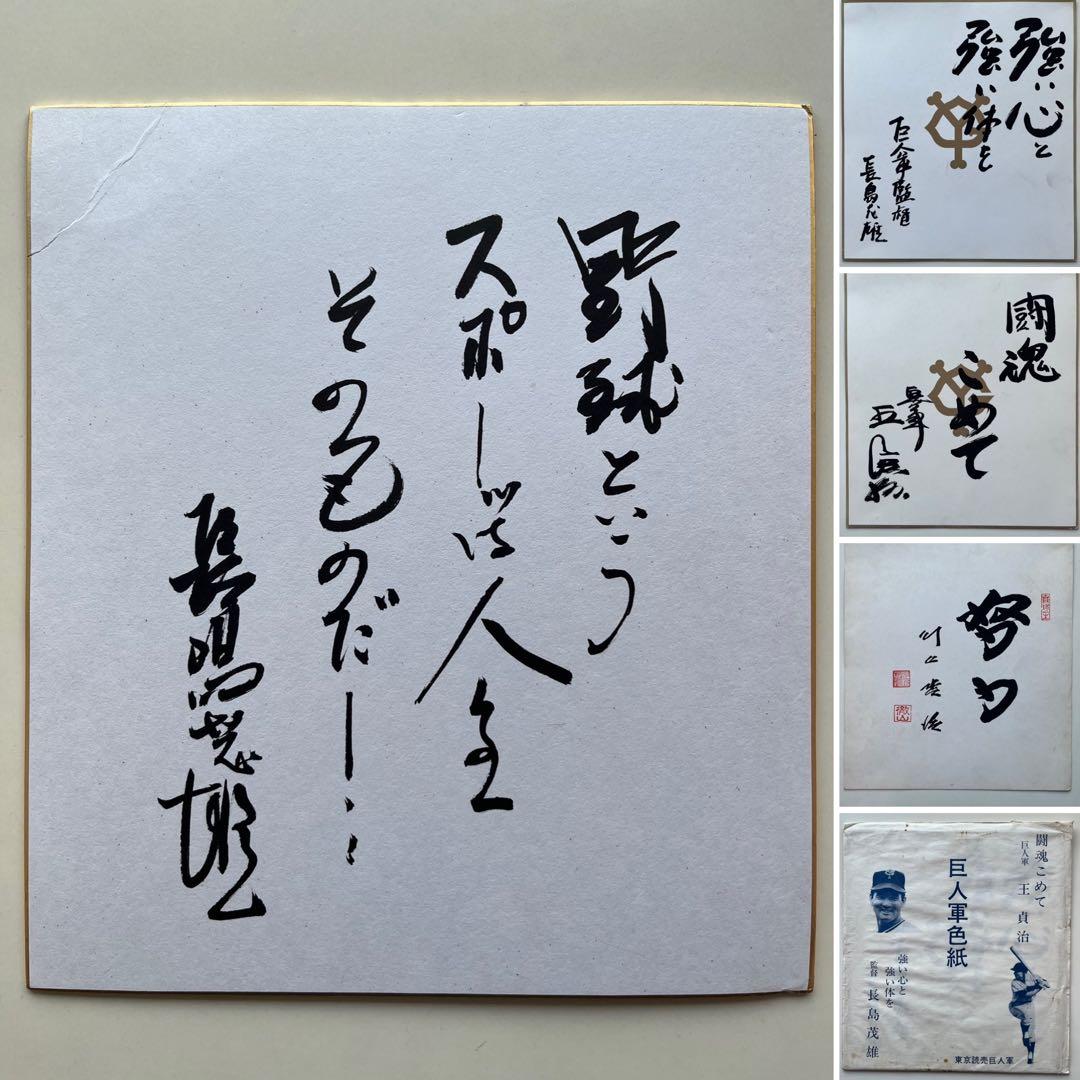 野球という
スポーツは人生
そのものだー
長嶋茂雄
強い心と
強い体を
巨人軍監督
長島茂雄
闘魂
こめて
巨人軍
王貞治
努力
川上哲治
闘魂こめて
巨人軍
王貞治
巨人軍色紙
強い心と
強い体を
監督 長島茂雄
東京読売巨人軍